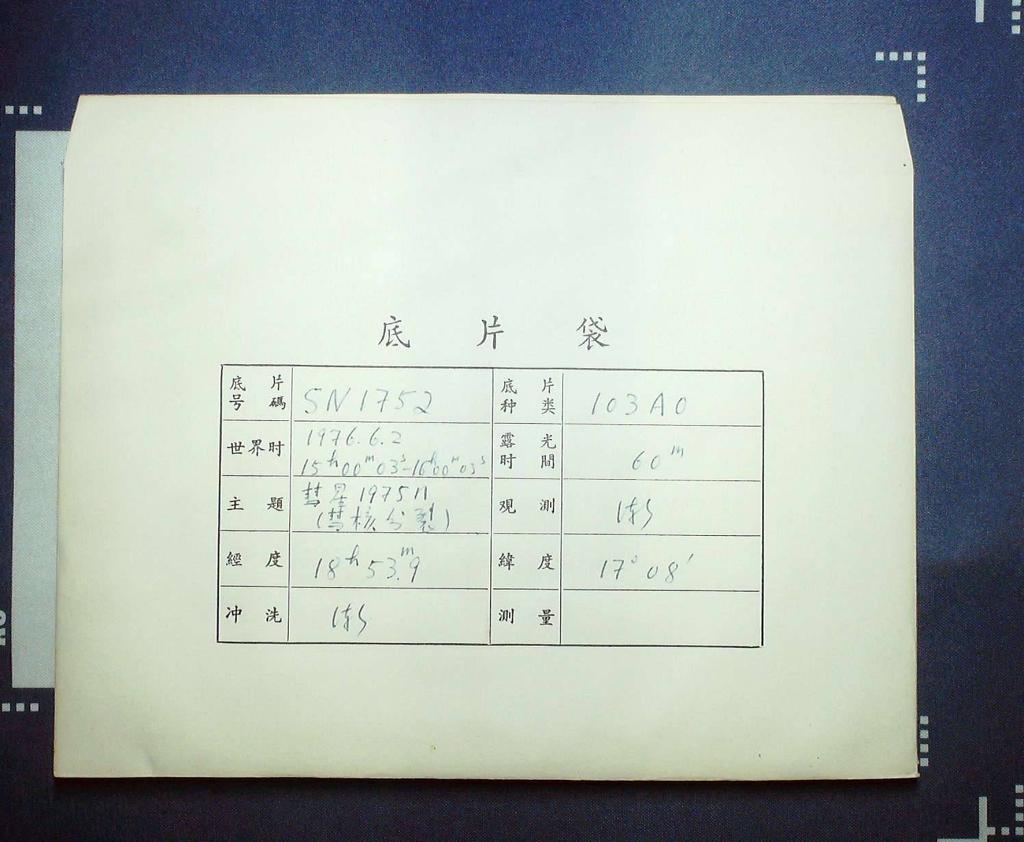 底 片 袋
底 片
号 碼
SN1752
底 片
种 类
103AO
世界时
1976.6.2
15ʰ00ᵐ03ˢ-16ʰ00ᵐ03ˢ
露 光
时 間
60ᵐ
主 題
彗星1975n
(彗核分裂)
观 測
經 度
18ʰ53ᵐ.9
緯 度
17°08′
冲 洗
測 量